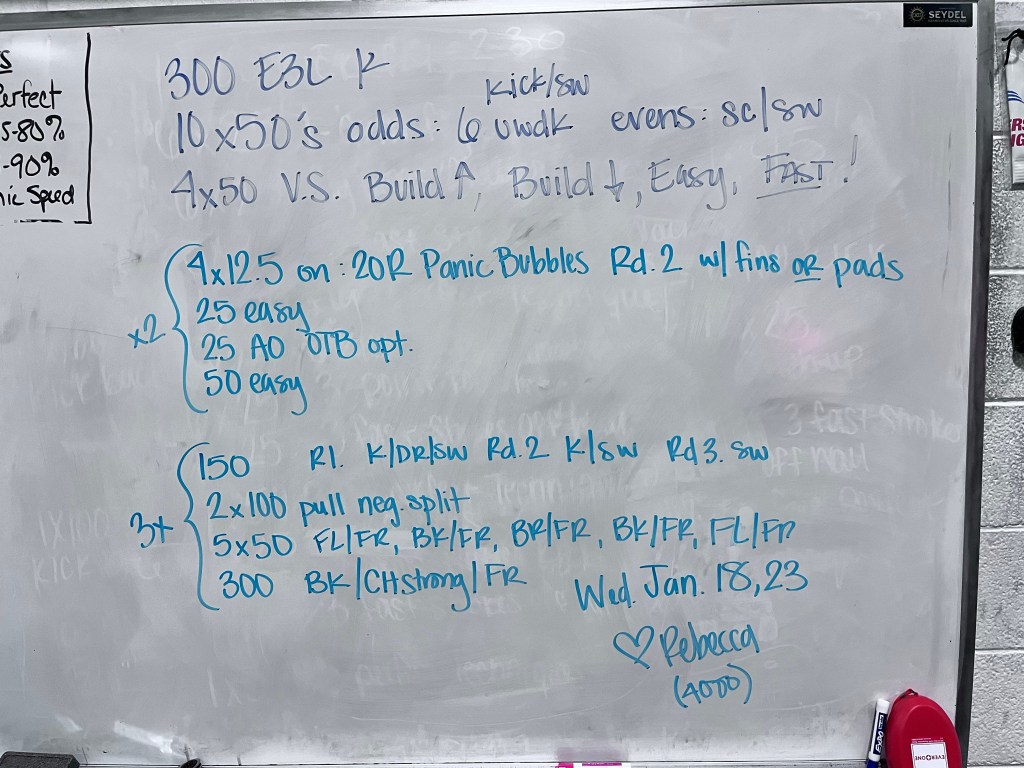 SEYDEL
S
erfect
5-80%
-90%
nic Speed
300 E3L K
Kick/sw
10x50's odds: 6 uwdk evens: sc/sw
4x50 V.S. Build↑, Build↓, Easy, FAST!
x2
4x12.5 on :20R Panic Bubbles Rd.2 w/ fins OR pads
25 easy
25 AO OTB opt.
50 easy
3x
150 R1. K/DR/sw Rd.2 K/sw Rd3. sw
2x100 pull neg.split
5x50 FL/FR, BK/FR, BR/FR, BK/FR, FL/FR
300 BK/CHstrong/FR
Wed. Jan. 18, 23
♡ Rebecca
(4000)
EXPO
EVERONE